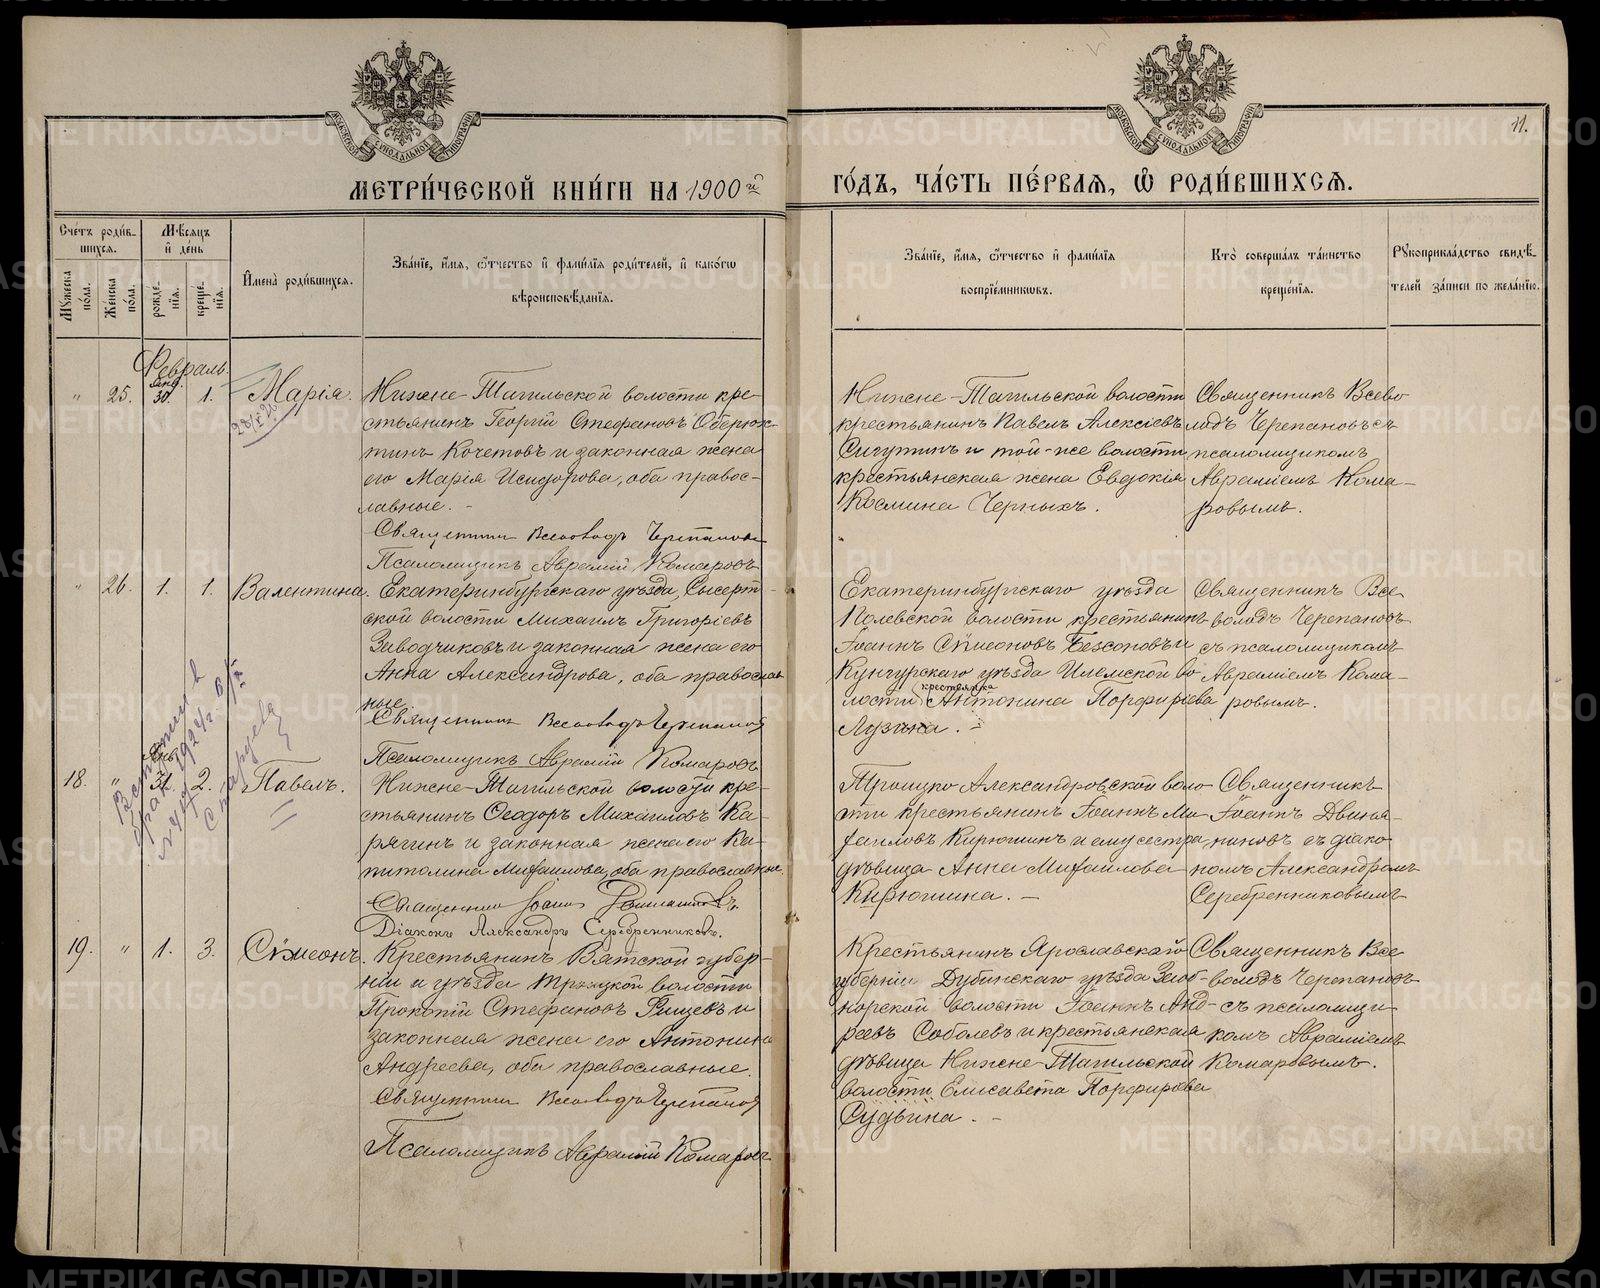 МЕТРИ́ЧЕСКОЙ КНИ́ГИ НА 1900 й
ГО́ДЪ, ЧА́СТЬ ПЕ́РВАЯ, Ѡ РОДИ́ВШИХСЯ.
11.
Сче́тъ роди́в-
шихся.
Мѣ́сяцъ
и де́нь
Му́жеска
по́ла.
Же́нска
по́ла.
рожде́-
нія.
креще́-
нія.
Имена̀ роди́вшихся.
Зва́ніе, и́мя, ѻ́тчество и фами́лія роди́телей, и како́гѡ
вѣроисповѣ́данія.
Зва́ніе, и́мя, ѻ́тчество и фами́лія
воспріе́мниковъ.
Кто̀ соверша́лъ та́инство
креще́нія.
Рукоприкла́дство свидѣ́-
телей за́писи по жела́нію.
Февраль.
" 25. Янв. 30. 1. Марія.
Нижне-Тагильской волости кре-
стьянинъ Георгій Стефановъ Оберюх-
тинъ Кочетовъ и законная жена
его Марія Исидорова, оба правос-
лавные. -
Священникъ Всеволодъ Черепановъ
Псаломщикъ Авраамій Комаровъ
Нижне-Тагильской волости
крестьянинъ Павелъ Алексіевъ
Сигутинъ и той-же волости
крестьянская жена Евдокія
Космина Черныхъ.
Священникъ Всево
лодъ Черепановъ съ
псаломщикомъ
Авраміемъ Кома-
ровымъ.
" 26. 1. 1. Валентина.
Екатеринбургскаго уѣзда, Сысерт-
ской волости Михаилъ Григоріевъ
Заводчиковъ и законная жена его
Анна Александрова, оба православ
ные.
Священникъ Всеволодъ Черепановъ
Псаломщикъ Аврамій Комаровъ
Екатеринбургскаго уѣзда
Полевской волости крестьянинъ
Іоаннъ Сѵмеоновъ Безсоновъ и
Кунгурскаго уѣзда Илемской во
лости крестьянка Антонина Порфирьева
Лузина. -
Священникъ Все
володъ Черепановъ
съ псаломщикомъ
Авраміемъ Кома-
ровымъ.
18. " Янв. 31. 2. Павелъ.
Нижне-Тагильской волости кре-
стьянинъ Ѳеодоръ Михаиловъ Ка-
рягинъ и законная жена его Ка-
питолина Михаилова, оба православные.
Священникъ Іоаннъ
Діаконъ Александръ Серебренниковъ.
Троицко Александровской воло
сти крестьянинъ Іоаннъ Ми-
хаиловъ Кирюшинъ и ему сестра,
дѣвица Анна Михаилова
Кирюшина. -
Священникъ
Іоаннъ Двиня-
ниновъ съ діако-
номъ Александромъ
Серебренниковымъ
19. " 1. 3. Сѵмеонъ.
Крестьянинъ Вятской губер-
ніи и уѣзда Троицкой волости
Прокопій Стефановъ и
законная жена его Антонина
Андреева, оба православные.
Священникъ Всеволодъ Черепановъ
Псаломщикъ Аврамій Комаровъ
Крестьянинъ Ярославской
губерніи уѣзда
волости Іоаннъ Анд-
реевъ Соболевъ и крестьянская
дѣвица Нижне-Тагильской
волости Елисавета Порфирова
Судьина. -
Священникъ Все
володъ Черепановъ
съ псаломщи-
комъ Авраміемъ
Комаровымъ.
METRIKI.GASO-URAL.RU